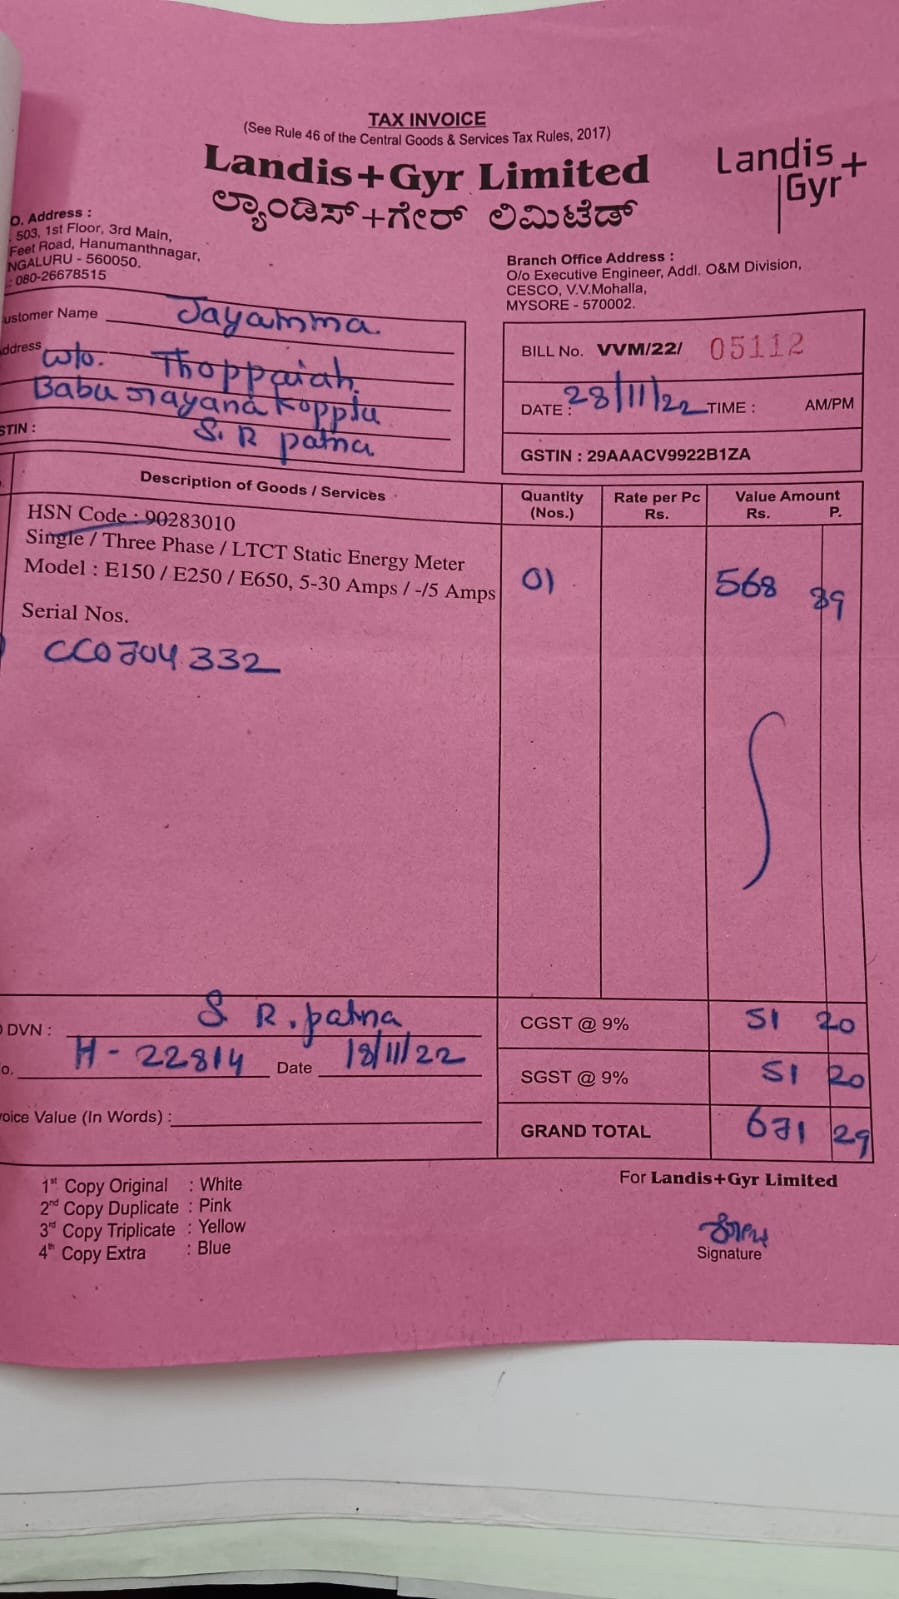 TAX INVOICE
(See Rule 46 of the Central Goods & Services Tax Rules, 2017)
Landis+Gyr Limited
ಲ್ಯಾಂಡಿಸ್+ಗೇರ್ ಲಿಮಿಟೆಡ್
Landis
Gyr+
O. Address :
503, 1st Floor, 3rd Main,
Feet Road, Hanumanthnagar,
NGALURU - 560050.
: 080-26678515
Branch Office Address :
O/o Executive Engineer, Addl. O&M Division,
CESCO, V.V.Mohalla,
MYSORE - 570002.
ustomer Name Jayamma
ddress w/o. Thoppaiah.
Babu nayana kopplu
STIN : S. R patna
BILL No. VVM/22/ 05112
DATE : 28/11/22 TIME : AM/PM
GSTIN : 29AAACV9922B1ZA
Description of Goods / Services Quantity (Nos.) Rate per Pc Rs. Value Amount Rs. P.
HSN Code : 90283010
Single / Three Phase / LTCT Static Energy Meter
Model : E150 / E250 / E650, 5-30 Amps / -/5 Amps 01 568 89
Serial Nos.
CC0704332
DVN : S R. patna
o. H - 22814 Date 18/11/22
voice Value (In Words) :
CGST @ 9% 51 20
SGST @ 9% 51 20
GRAND TOTAL 671 29
1st Copy Original : White
2nd Copy Duplicate : Pink
3rd Copy Triplicate : Yellow
4th Copy Extra : Blue
For Landis+Gyr Limited
Signature